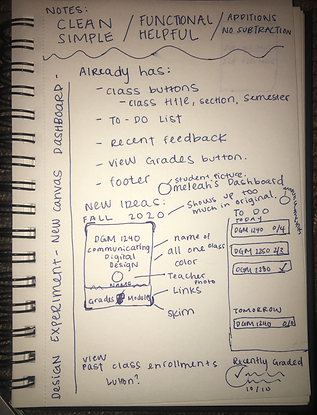 NOTES:
CLEAN / FUNCTIONAL / ADDITIONS
SIMPLE HELPFUL NO SUBTRACTION
DESIGN EXPERIMENT - New Canvas DASHBOARD -
Already has:
- class buttons
- class title, section, semester
- TO-DO LIST
- recent feedback
- view Grades button.
- footer
student picture.
meleah's Dashboard
NEW Ideas:
shows up too
much in original,
FALL 2020
DGM 1240
communicating
Digital
Design
NAME
Grades Modules
name of class
all one
color
Teacher
Photo
Links
skim
TO DO
TODAY
DGM 1240 0/4
DGM 1250 2/3
TOMORROW
DGM 1240
view
past class enrollments
button?
Recently Graded
12/10